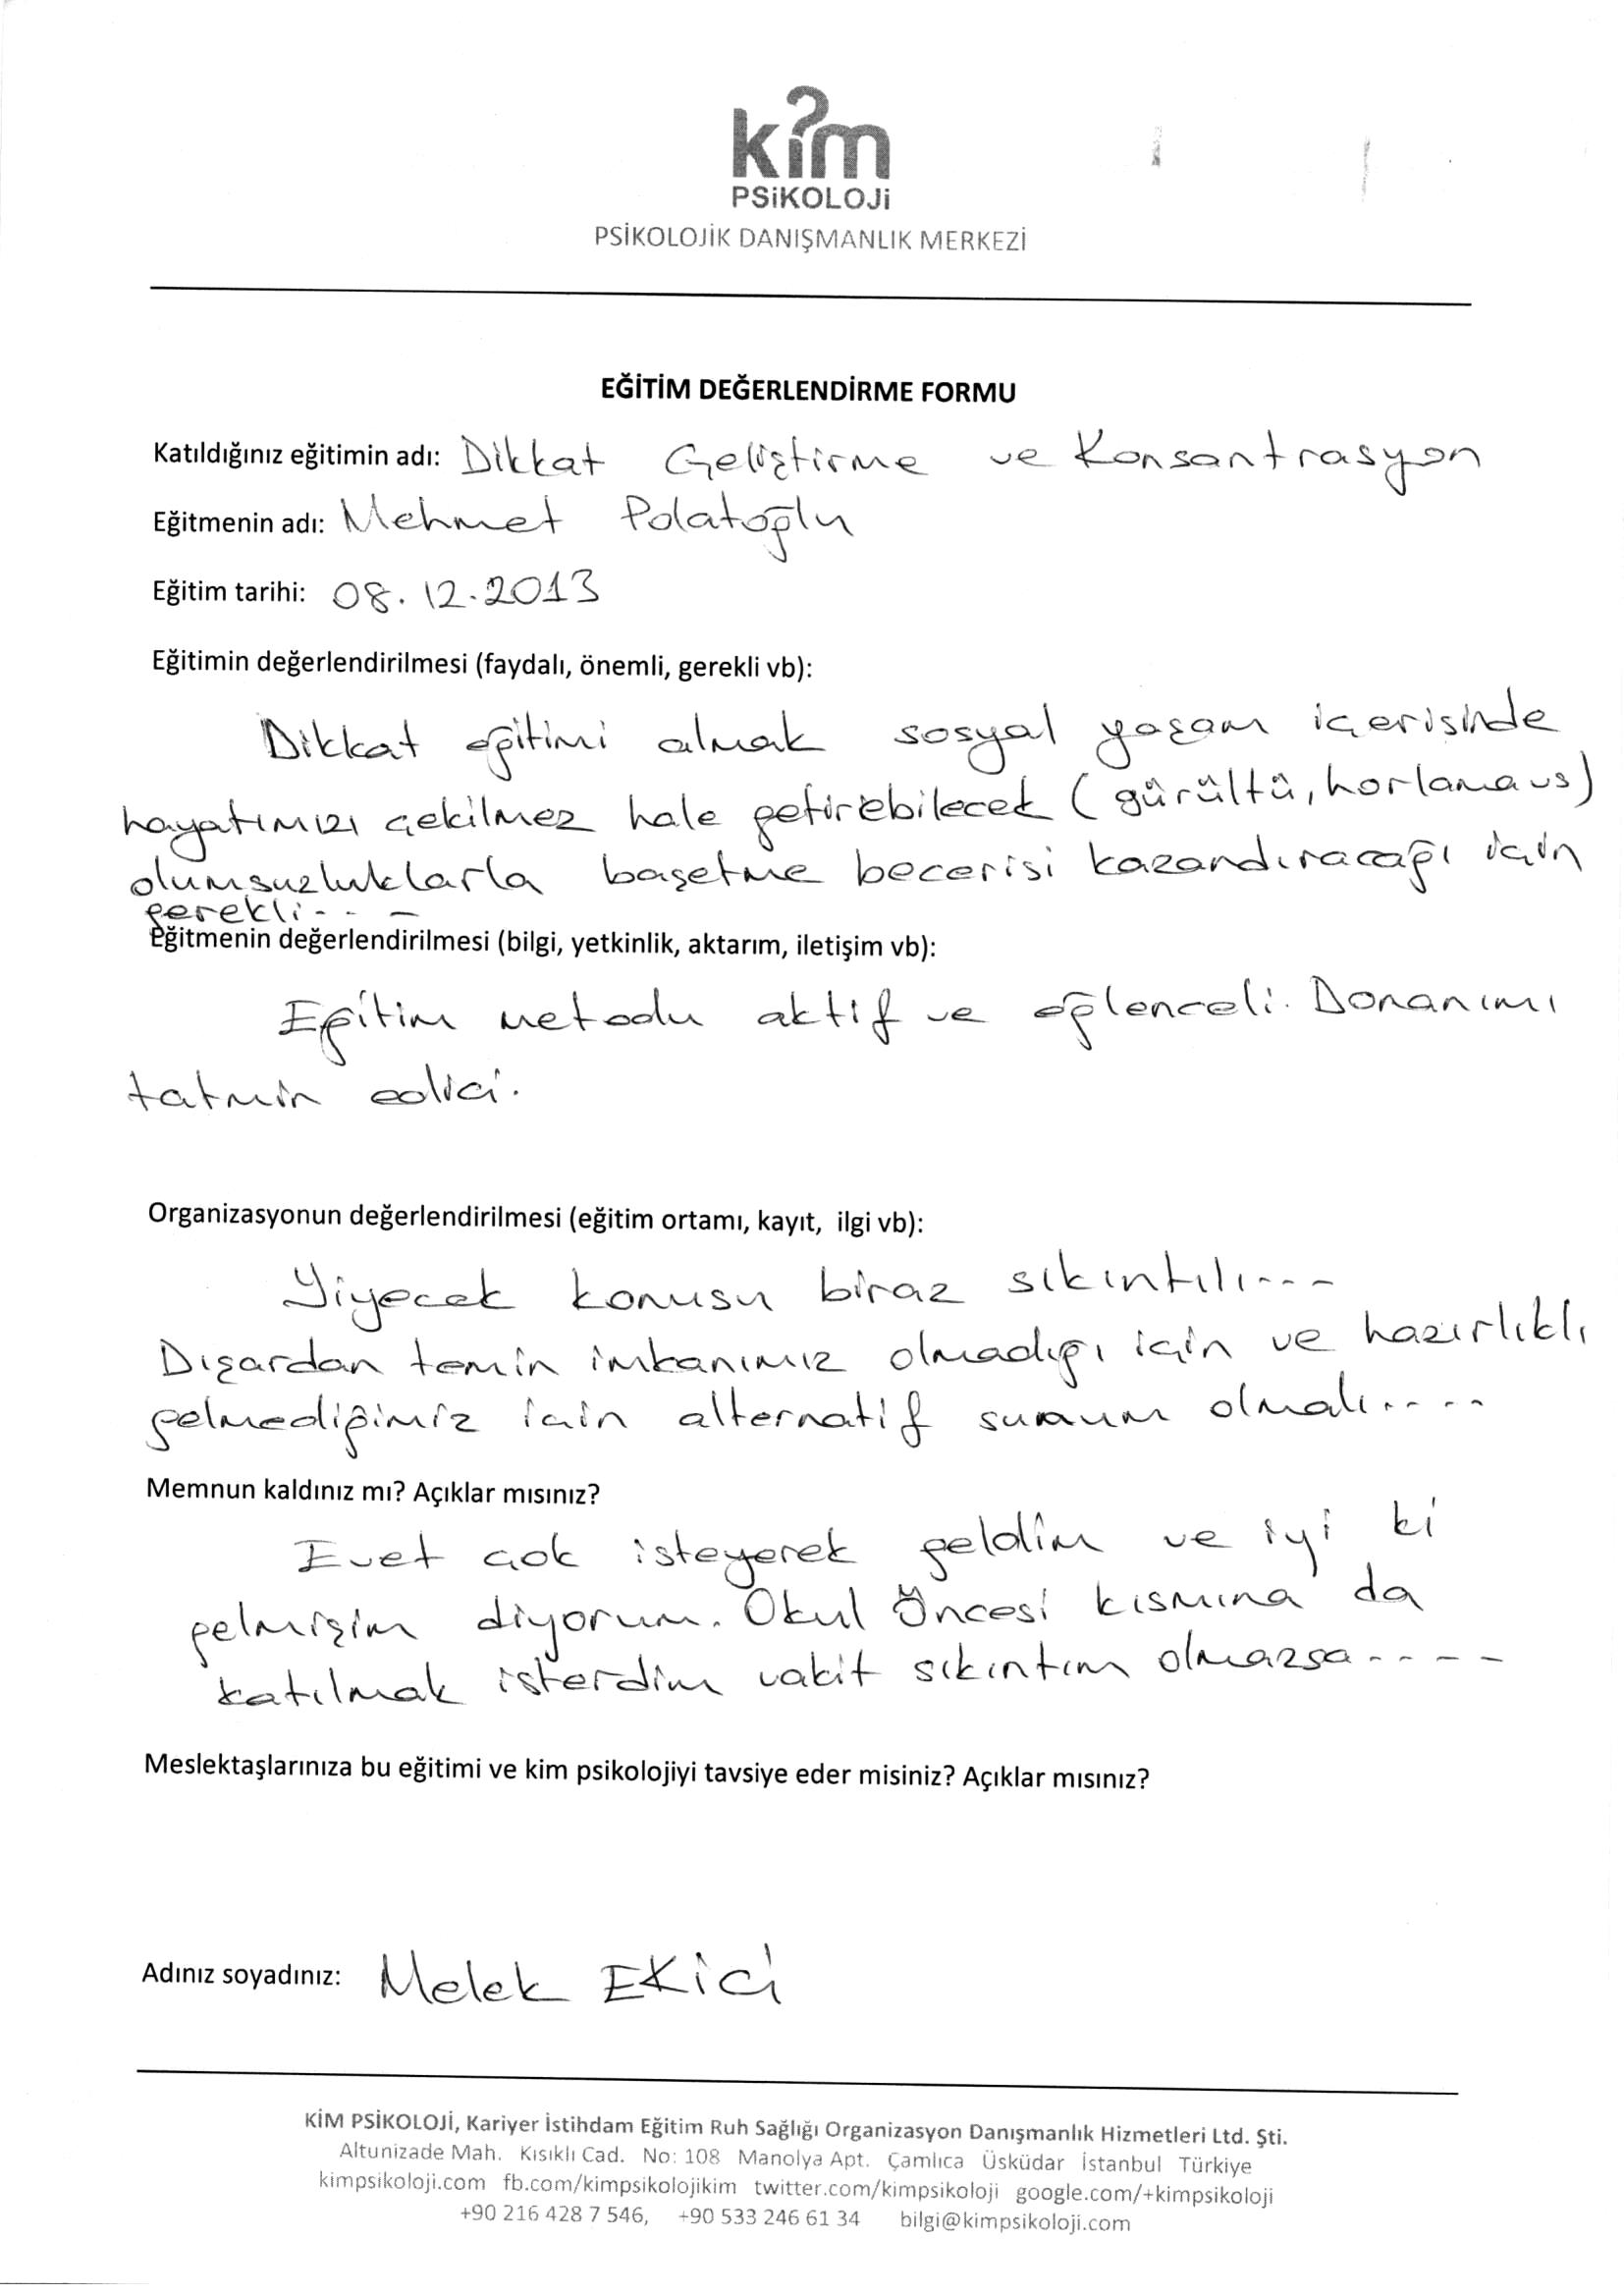 kim
PSiKOLOJi
PSİKOLOJİK DANIŞMANLIK MERKEZİ
EĞİTİM DEĞERLENDİRME FORMU
Katıldığınız eğitimin adı: Dikkat Geliştirme ve Konsantrasyon
Eğitmenin adı: Mehmet Polatoğlu
Eğitim tarihi: 08.12.2013
Eğitimin değerlendirilmesi (faydalı, önemli, gerekli vb):
Dikkat eğitimi almak sosyal yaşam içerisinde
hayatımızı çekilmez hale getirebilecek (gürültü, horlama vs)
olumsuzluklarla başetme becerisi kazandıracağı için
gerekli - - -
Eğitmenin değerlendirilmesi (bilgi, yetkinlik, aktarım, iletişim vb):
Eğitim metodu aktif ve eğlenceli. Donanımı
tatmin edici.
Organizasyonun değerlendirilmesi (eğitim ortamı, kayıt, ilgi vb):
Yiyecek konusu biraz sıkıntılı - - -
Dışardan temin imkanımız olmadığı için ve hazırlıklı
gelmediğimiz için alternatif sunum olmalı - - - -
Memnun kaldınız mı? Açıklar mısınız?
Evet çok isteyerek geldim ve iyi ki
gelmişim diyorum. Okul Öncesi kısmına da
katılmak isterdim vakit sıkıntım olmazsa - - - -
Meslektaşlarınıza bu eğitimi ve kim psikolojiyi tavsiye eder misiniz? Açıklar mısınız?
Adınız soyadınız: Melek EKİCİ
KİM PSİKOLOJİ, Kariyer İstihdam Eğitim Ruh Sağlığı Organizasyon Danışmanlık Hizmetleri Ltd. Şti.
Altunizade Mah. Kısıklı Cad. No: 108 Manolya Apt. Çamlıca Üsküdar İstanbul Türkiye
kimpsikoloji.com fb.com/kimpsikolojikim twitter.com/kimpsikoloji google.com/+kimpsikoloji
+90 216 428 7 546, +90 533 246 61 34 bilgi@kimpsikoloji.com